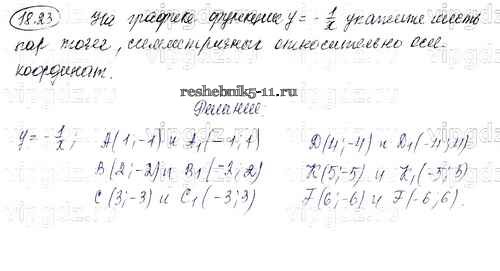 18.23 На графике функции y = -1/x укажите шесть
пар точек, симметричных относительно осей
координат.
reshebnik5-11.ru
Решение
y = -1/x; A(1;-1) и A₁(-1;1) D(4;-4) и D₁(-4;4)
B(2;-2) и B₁(-2;2) K(5;-5) и K₁(-5;5)
C(3;-3) и C₁(-3;3) F(6;-6) и F(-6;6).